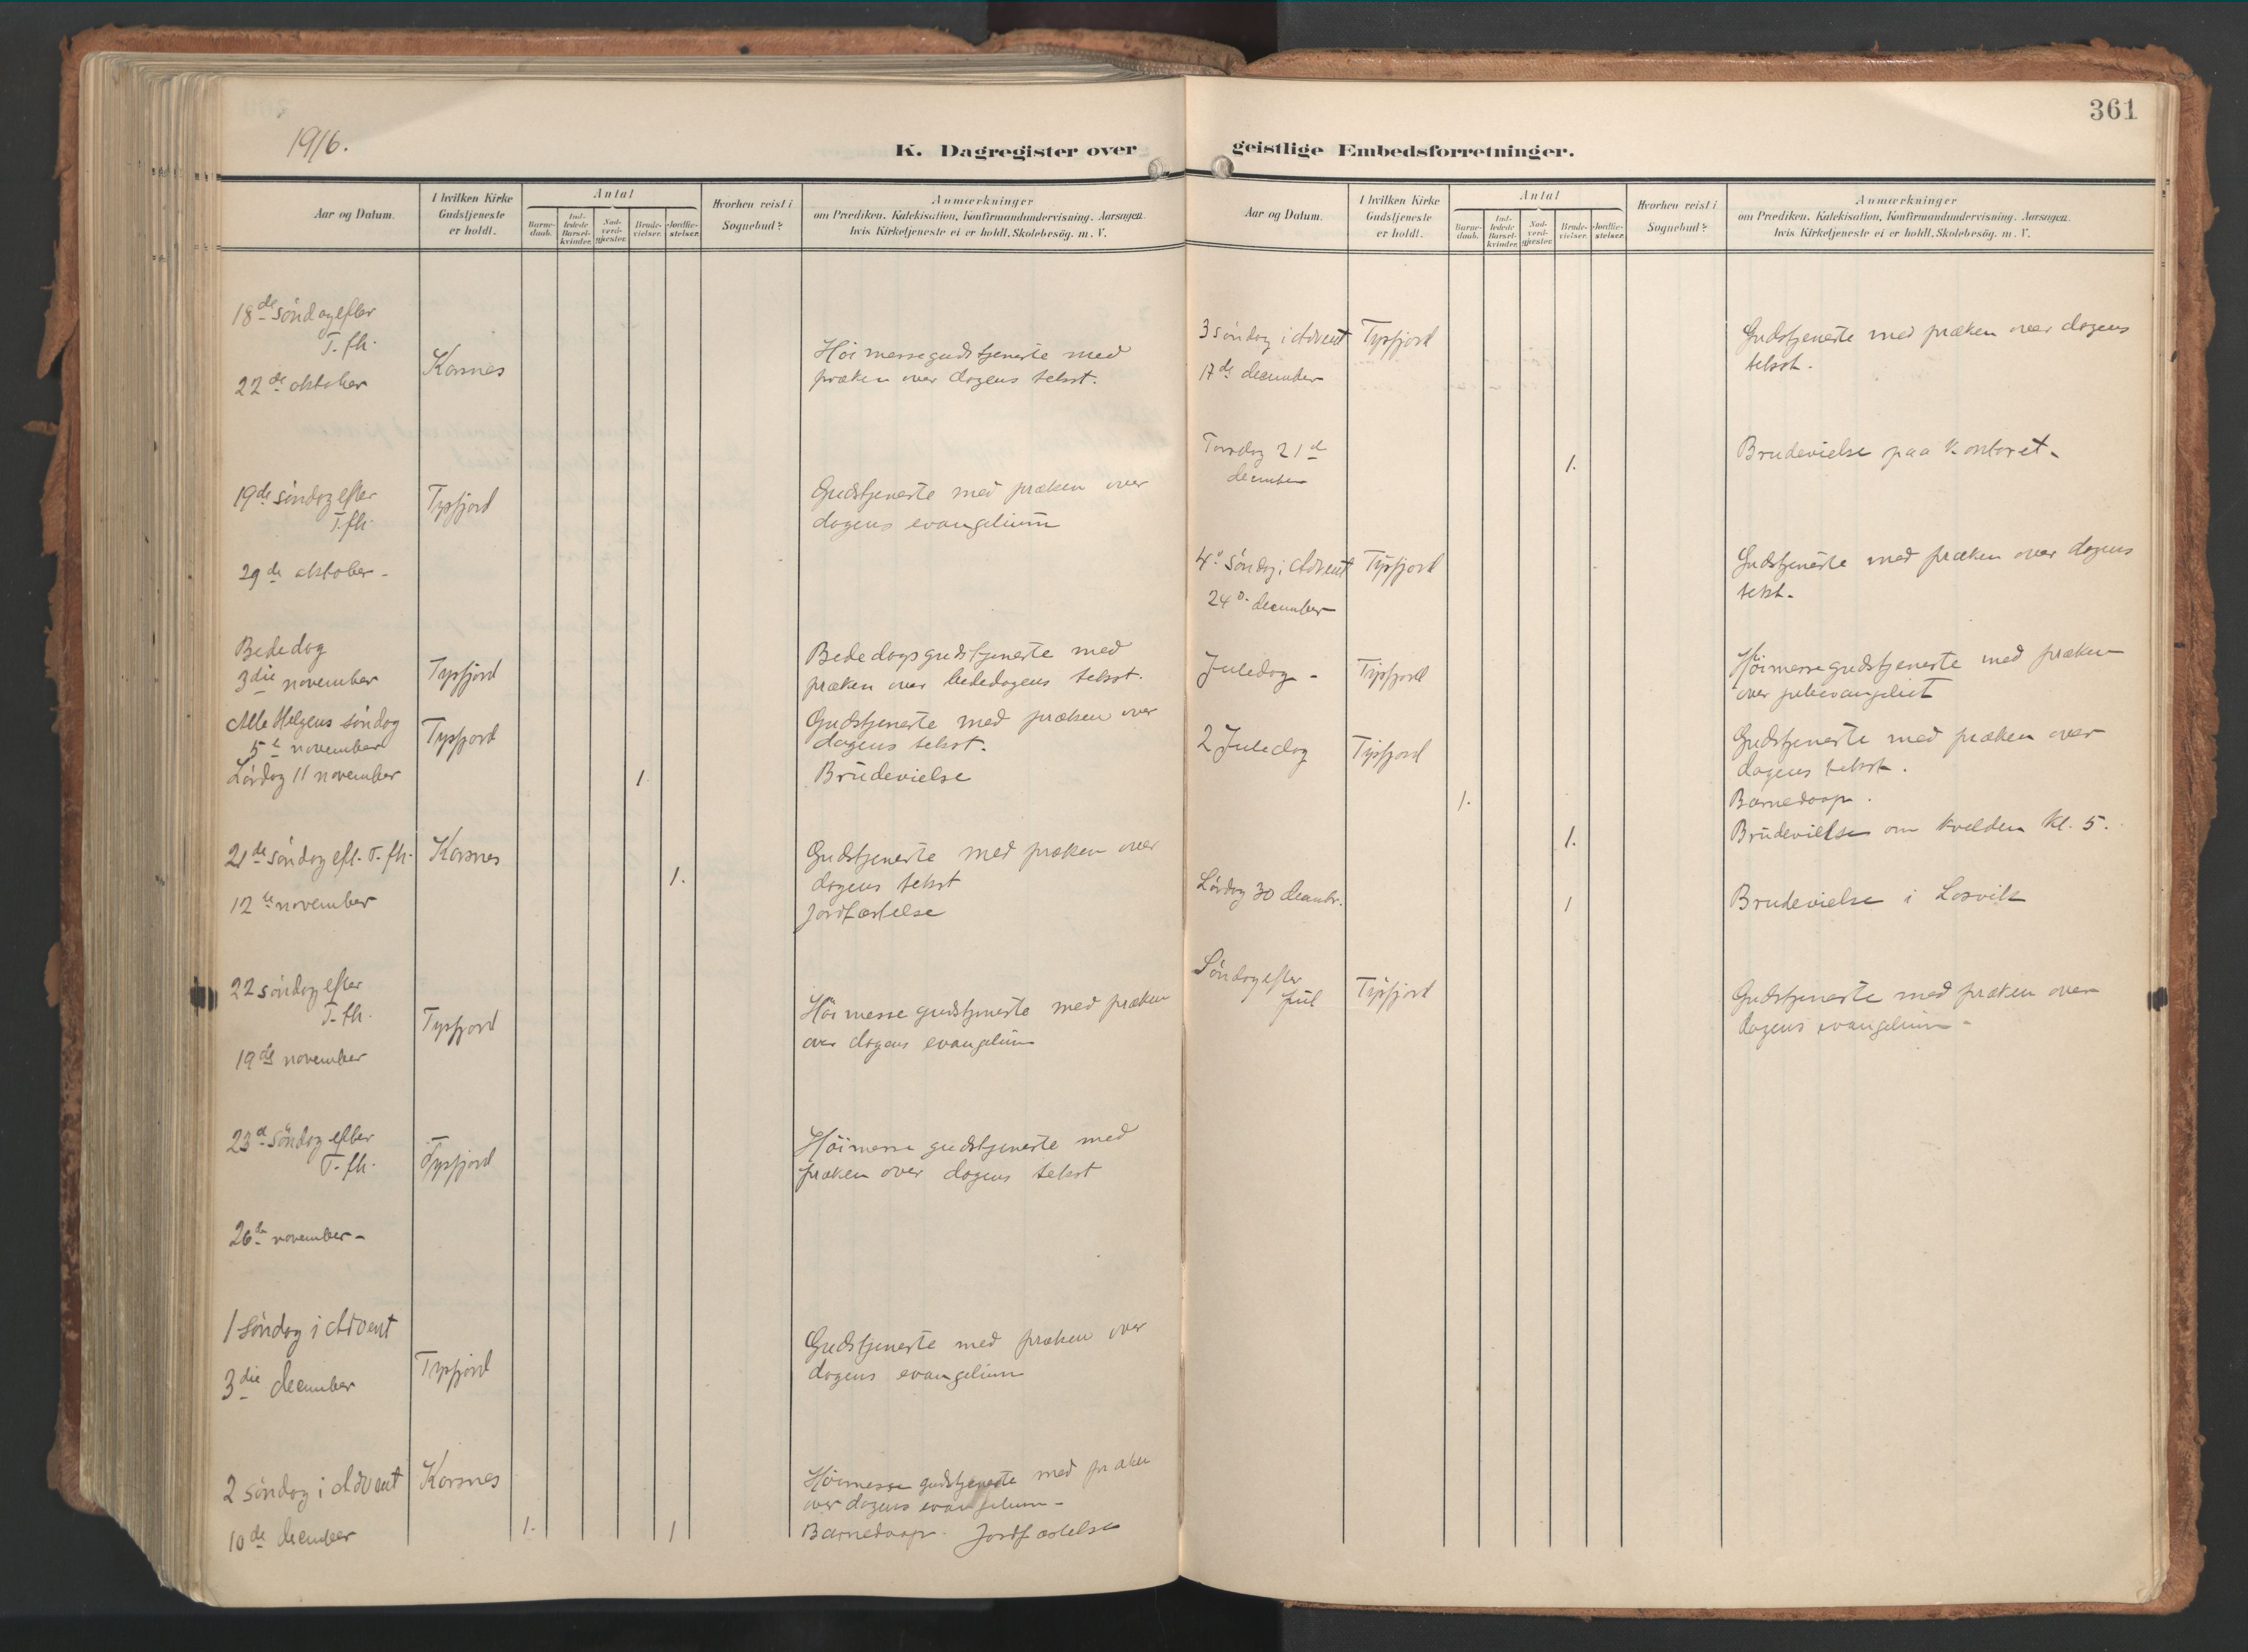 1916.
K. Dagregister over
Aar og Datum.
I hvilken Kirke
Gudstjeneste
er holdt.
Antal
Barne-
daab.
Ind-
ledede
Barsel-
kvinder.
Nad-
verd-
gjæster.
Brude-
vielser.
Jordfæ-
stelser.
Hvorhen reist i
Sognebud?
Anmærkninger
om Prædiken, Katekisation, Konfirmandundervisning. Aarsagen.
hvis Kirketjeneste ei er holdt. Skolebesög. m. V.
18de söndag efter
T. fh.
22de oktober
Korsnes
Höimessegudstjeneste med
præken over dagens tekst.
19de söndag efter
T. fh.
29de oktober -
Tysfjord
Gudstjeneste med præken over
dagens evangelium
Bededag
3die november
Tysfjord
Bededagsgudstjeneste med
præken over bededagens tekst.
Alle Helgens söndag
5te november
Tysfjord
Gudstjeneste med præken over
dagens tekst.
Lördag 11 november
1
Brudevielse
21de söndag eft. T. fh.
12te november
Korsnes
1.
Gudstjeneste med præken over
dagens tekst
Jordfæstelse
22 söndag efter
T. fh.
19de november
Tysfjord
Höimesse gudstjeneste med præken
over dagens evangelium
23d söndag efter
T. fh.
26de november -
Tysfjord
Höimesse gudstjeneste med
præken over dagens tekst
1 söndag i Advent
3die december
Tysfjord
Gudstjeneste med præken over
dagens evangelium
2 söndag i Advent
10de december
Korsnes
1.
1
Höimesse gudstjeneste med præken
over dagens evangelium -
Barnedaap. Jordfæstelse
361
geistlige Embedsforretninger.
Aar og Datum.
I hvilken Kirke
Gudstjeneste
er holdt.
Antal
Barne-
daab.
Ind-
ledede
Barsel-
kvinder.
Nad-
verd-
gjæster.
Brude-
vielser.
Jordfæ-
stelser.
Hvorhen reist i
Sognebud?
Anmærkninger
om Prædiken, Katekisation, Konfirmandundervisning. Aarsagen.
hvis Kirketjeneste ei er holdt. Skolebesög. m. V.
3 söndag i Advent
17de december
Tysfjord
Gudstjeneste med præken over dagens
tekst.
Torsdag 21de
december
1.
Brudevielse paa Kontoret.
4de Söndag i Advent
24de december
Tysfjord
Gudstjeneste med præken over dagens
tekst.
Juledag -
Tysfjord
Höimessegudstjeneste med præken
over juleevangeliet
2 Juledag
Tysfjord
Gudstjeneste med præken over
dagens tekst.
1.
Barnedaap.
1.
Brudevielse om kvelden kl. 5.
Lördag 30 decembr.
1
Brudevielse i Losvik
Söndag efter
jul
Tysfjord
Gudstjeneste med præken over
dagens evangelium -